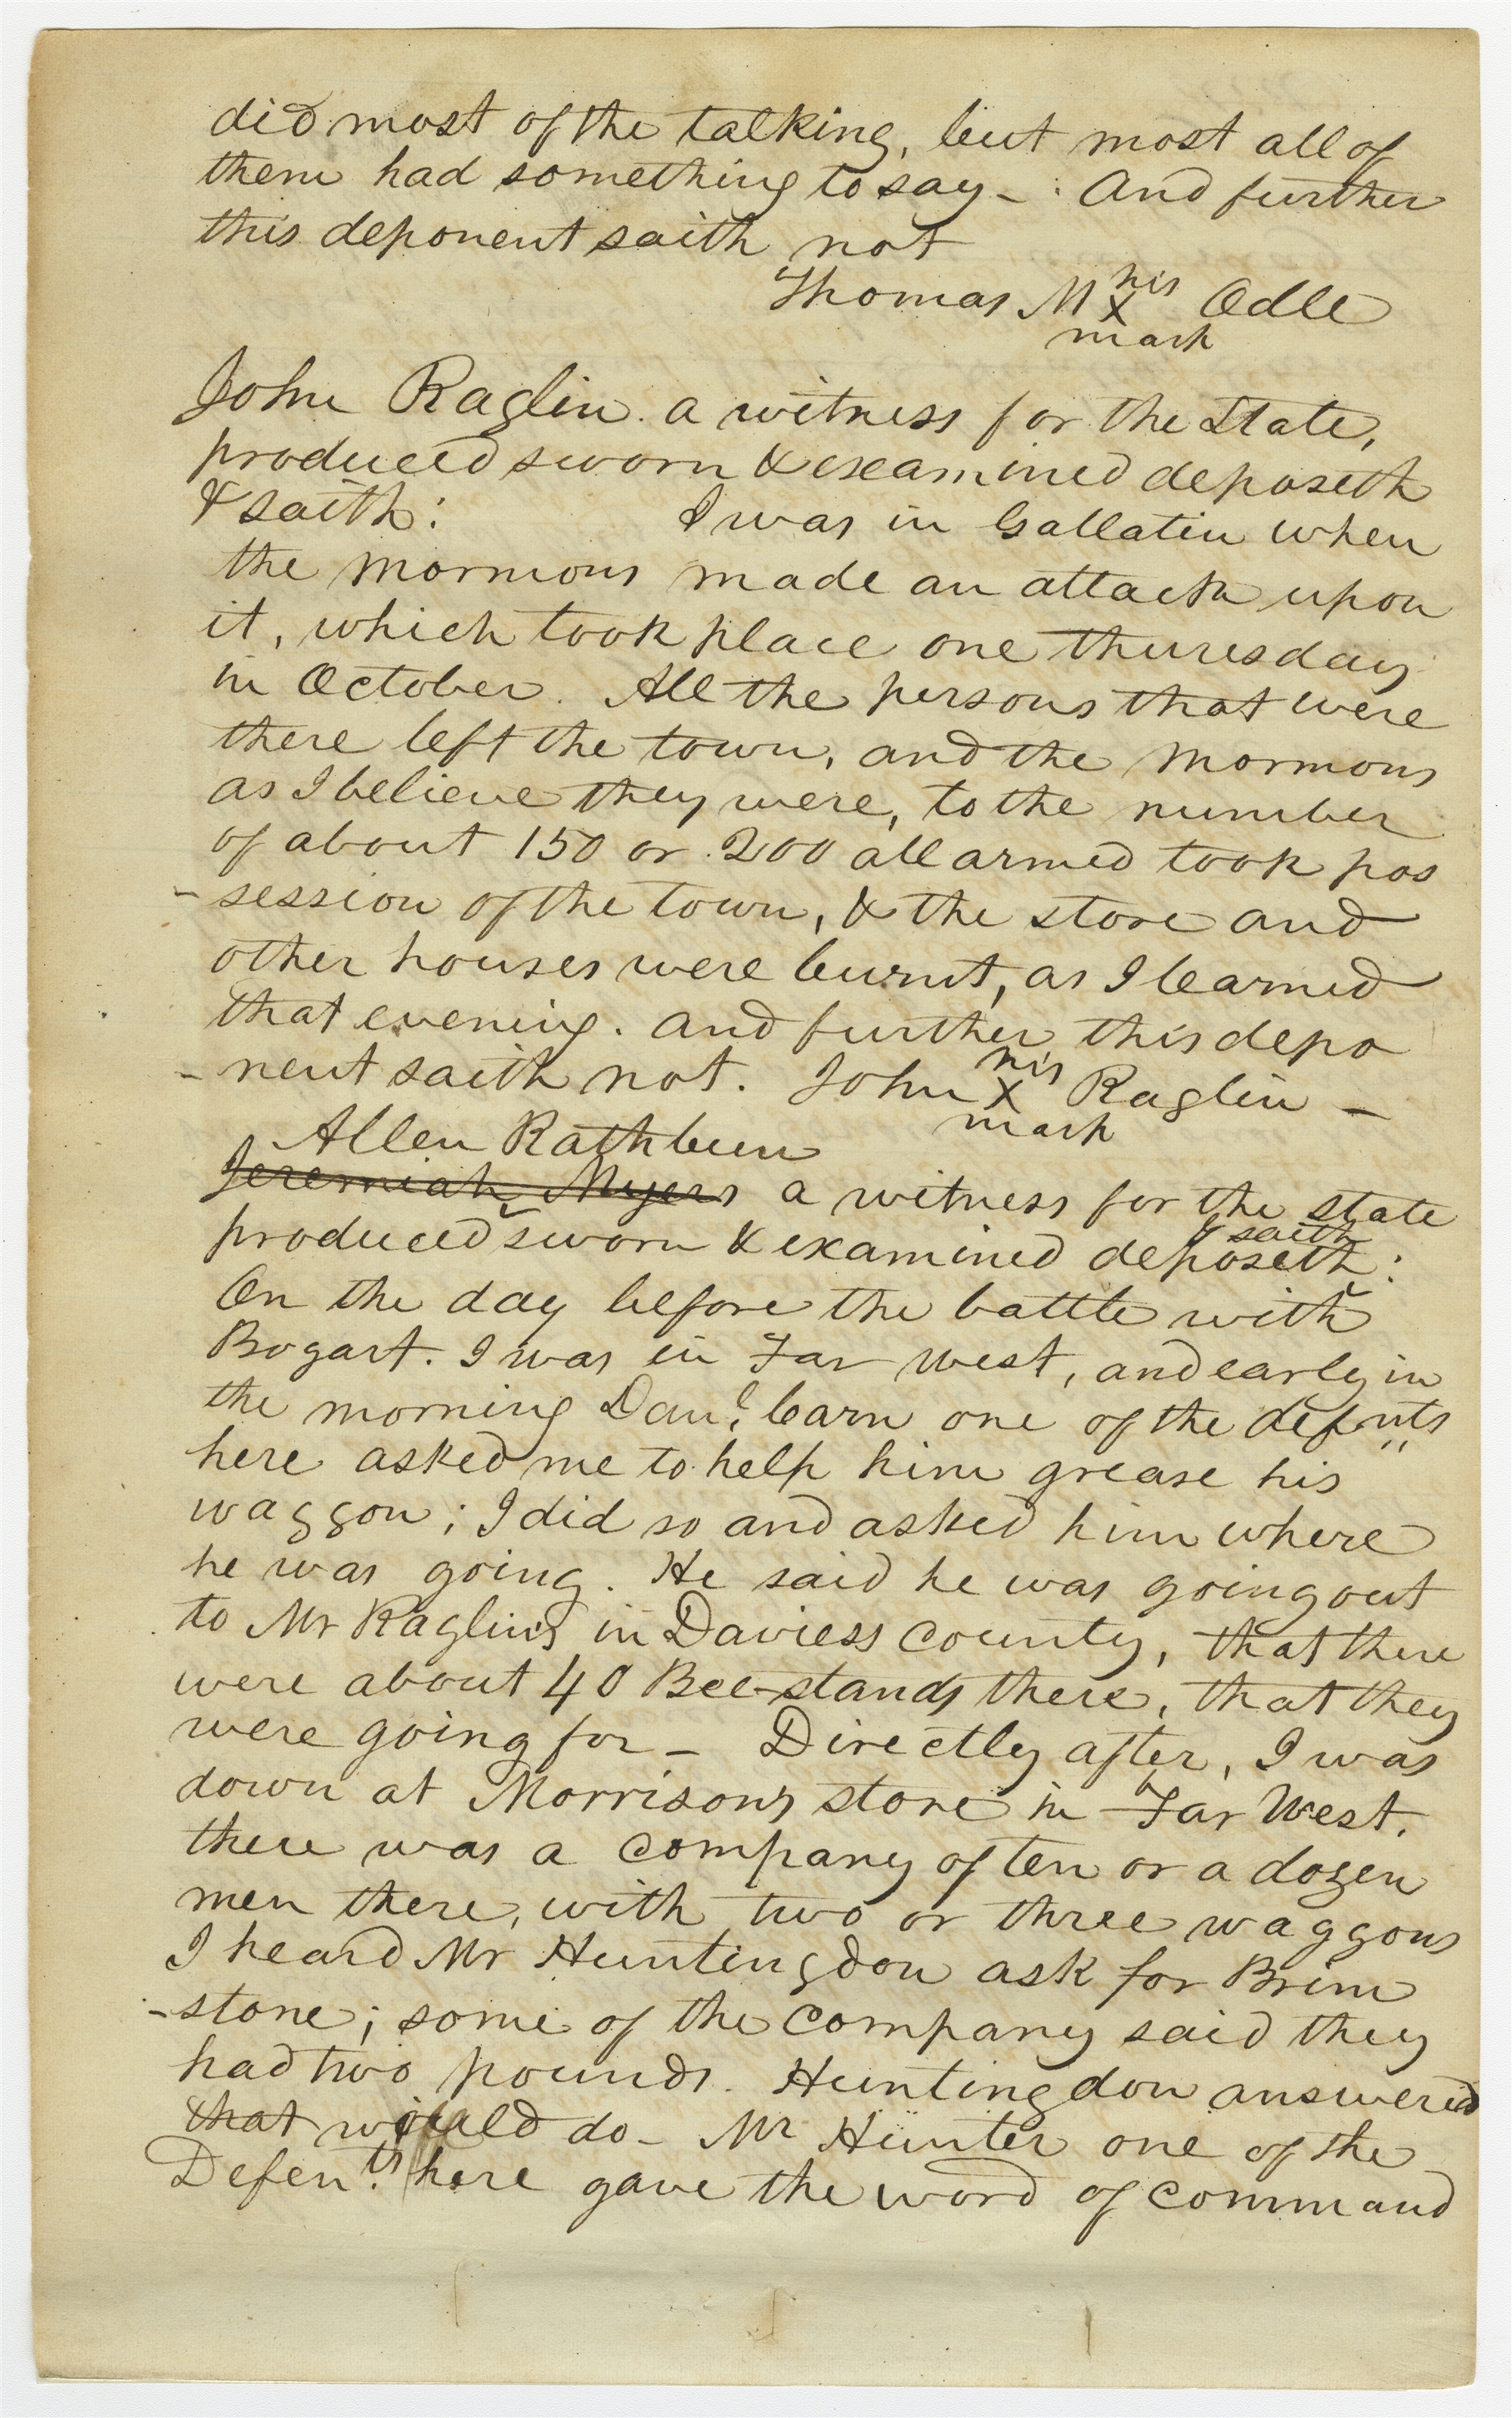 did most of the talking, but most all of
them had something to say – And further
this deponent saith not
Thomas M his X mark Odle
John Raglin. a witness for the State,
produced sworn & examined deposeth
& saith: I was in Gallatin when
the Mormons made an attack upon
it, which took place one thuresday
in October. All the persons that were
there left the town, and the Mormons
as I believe they were, to the number
of about 150 or 200 all armed took pos
-session of the town, & the store and
other houses were burnt, as I learned
that evening. and further this depo
-nent saith not. John his X mark Raglin –
Allen Rathbun
Jeremiah Myers a witness for the state
produced sworn & examined deposeth & saith:
On the day before the battle with
Bogart. I was in Far West, and early in
the morning Danl. Carn one of the defnts
here asked me to help him grease his
waggon; I did so and asked him where
he was going. He said he was going out
to Mr Raglin's in Daviess County, that there
were about 40 Bee-stands there, that they
were going for – Directly after, I was
down at Morrisons store in Far West.
there was a company of ten or a dozen
men there, with two or three waggons
I heard Mr Huntingdon ask for Brim
-stone; some of the company said they
had two pounds. Huntingdon answered
that would do – Mr Hunter one of the
Defen.ts here gave the word of command